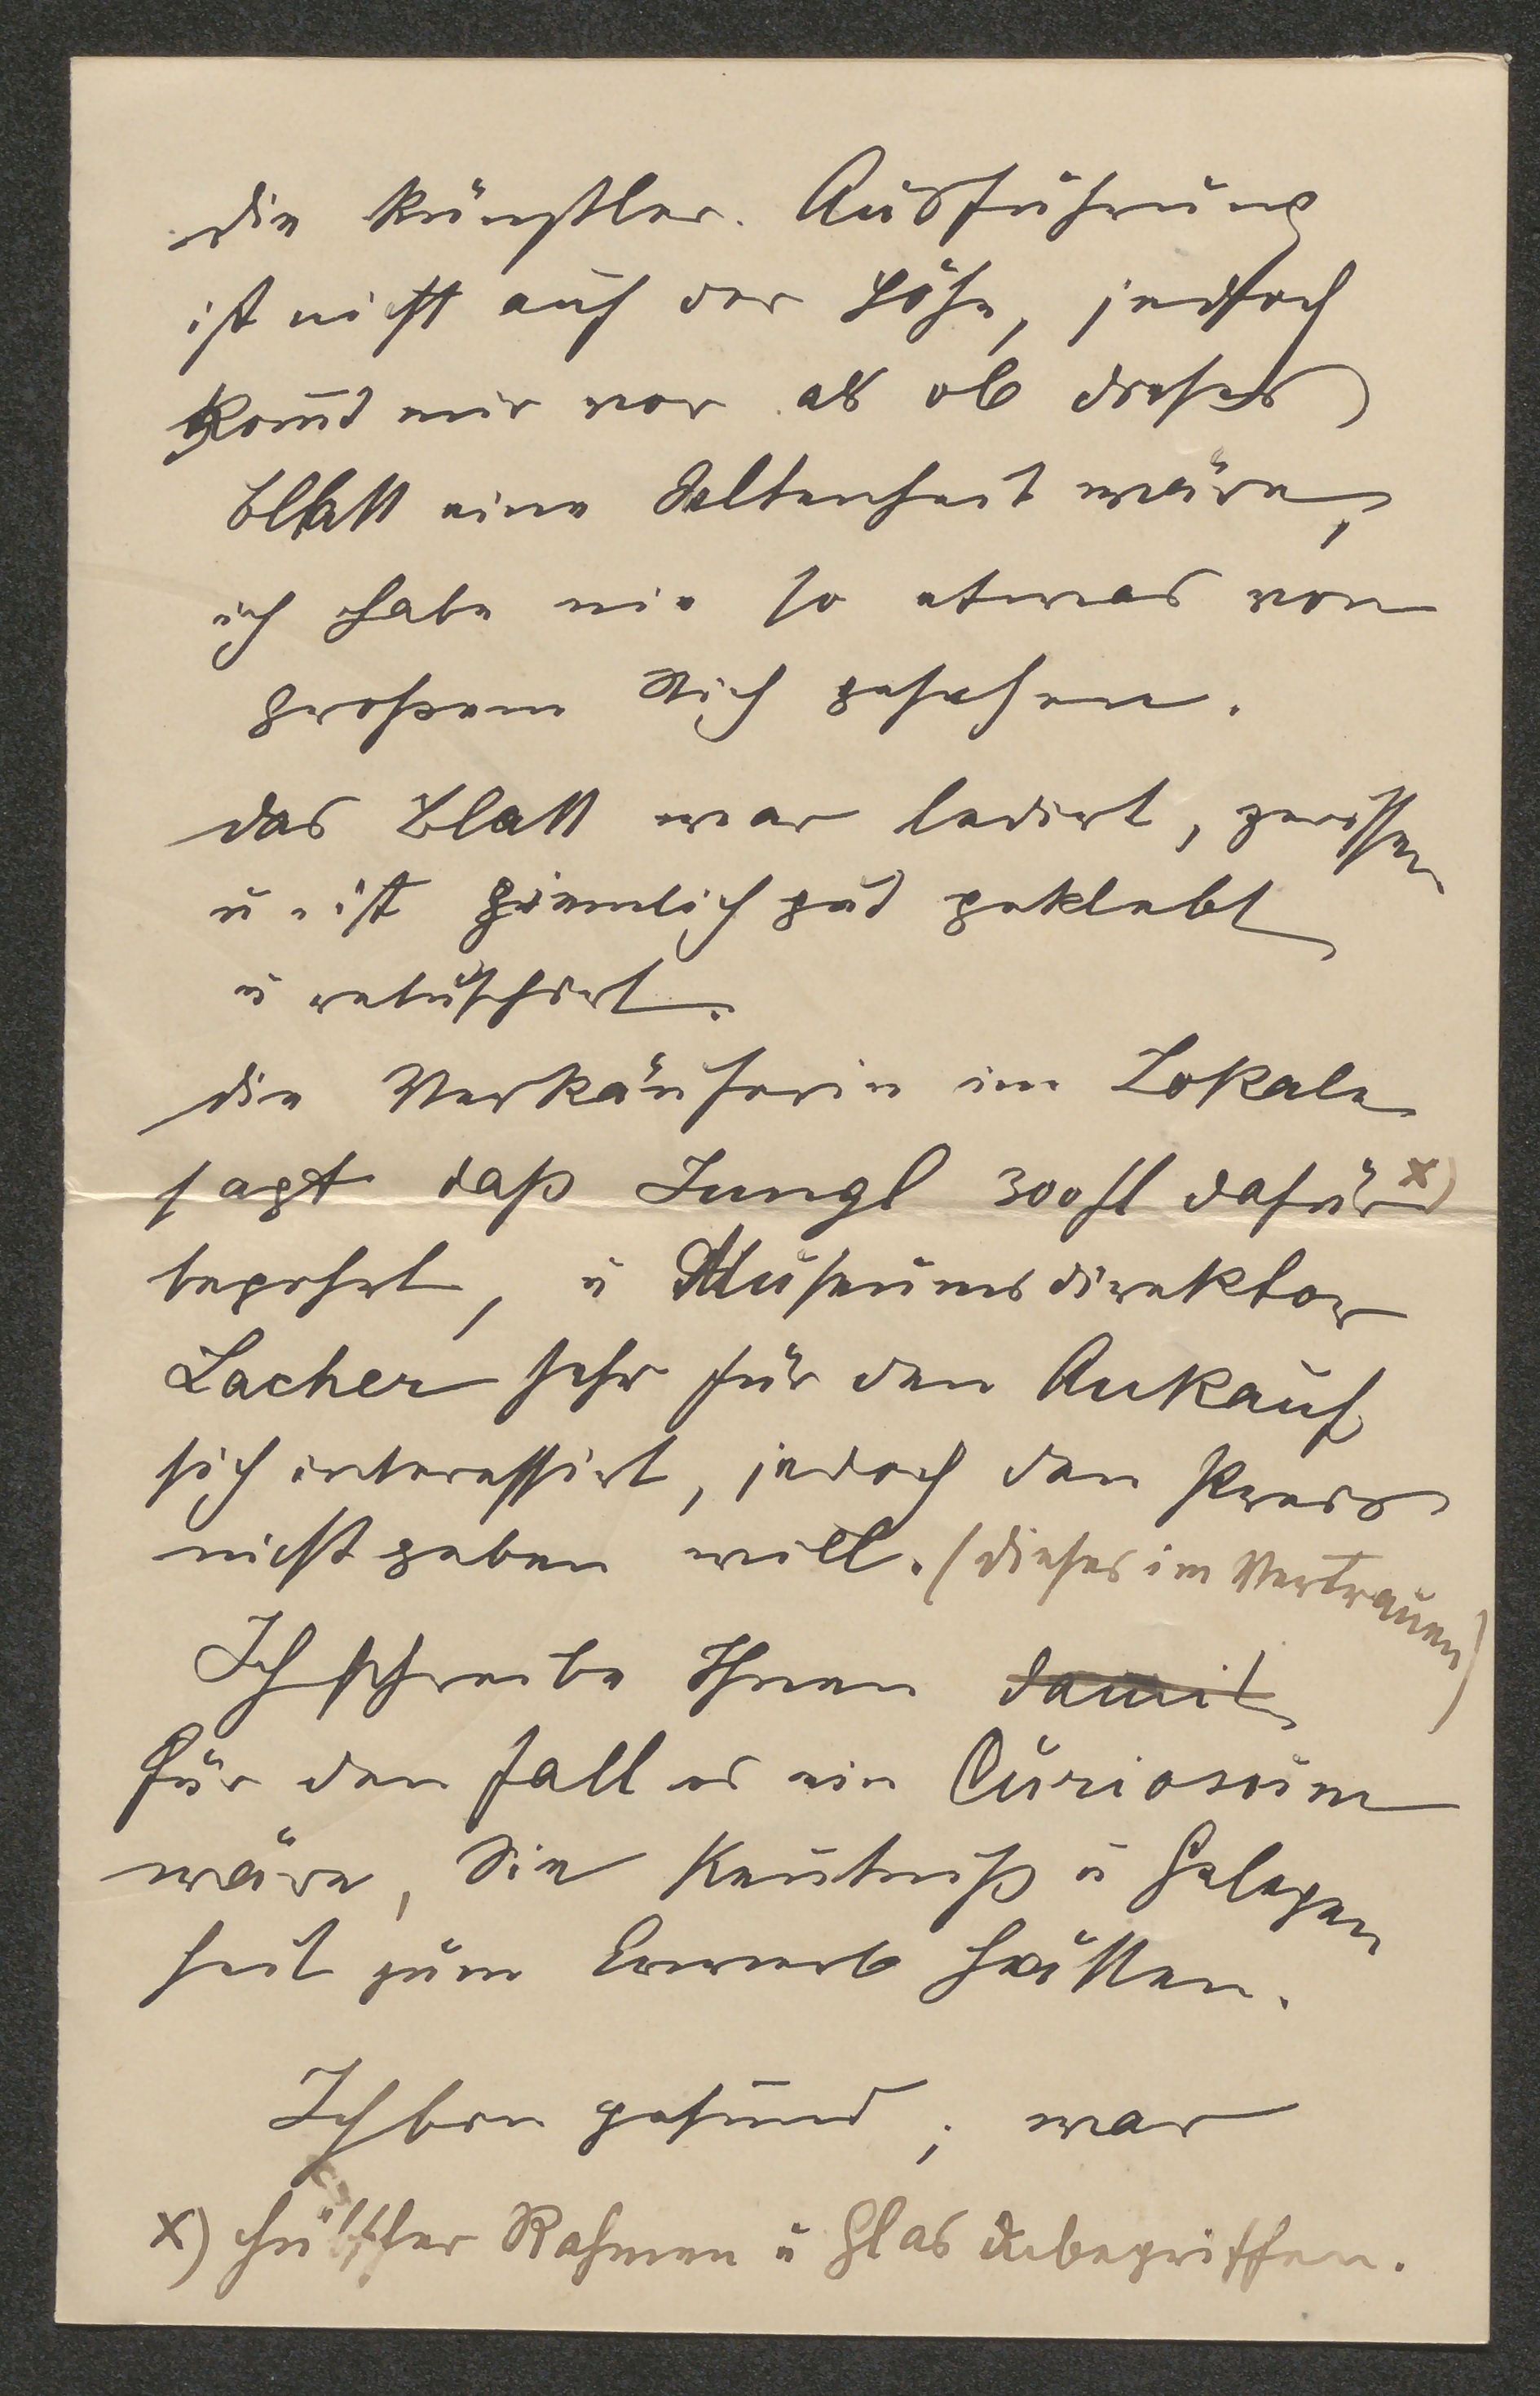 die künstler. Ausführung
ist nicht auf der Höhe, jedoch
komt mir vor als ob dieses
Blatt eine Seltenheit wäre,
ich habe nie so etwas von
großem Stich gesehen.
das Blatt war ledirt, zerissen
u. ist ziemlich gut geklebt
u retuschirt.
die Verkäuferin im Lokale
sagt daß Jungl 300 fl dafür x)
begehrt, u Museumsdirektor
Lacher sehr für den Ankauf
sich interessirt, jedoch den Preis
nicht geben will. (dieses im Vertrauen)
Ich schreibe Ihnen damit
für den Fall es ein Curiosum
wäre, Sie Kentniß u Gelegen
heit zum Erwerb hätten.
Ich bin gesund, war
x) hübscher Rahmen u Glas inbegriffen.